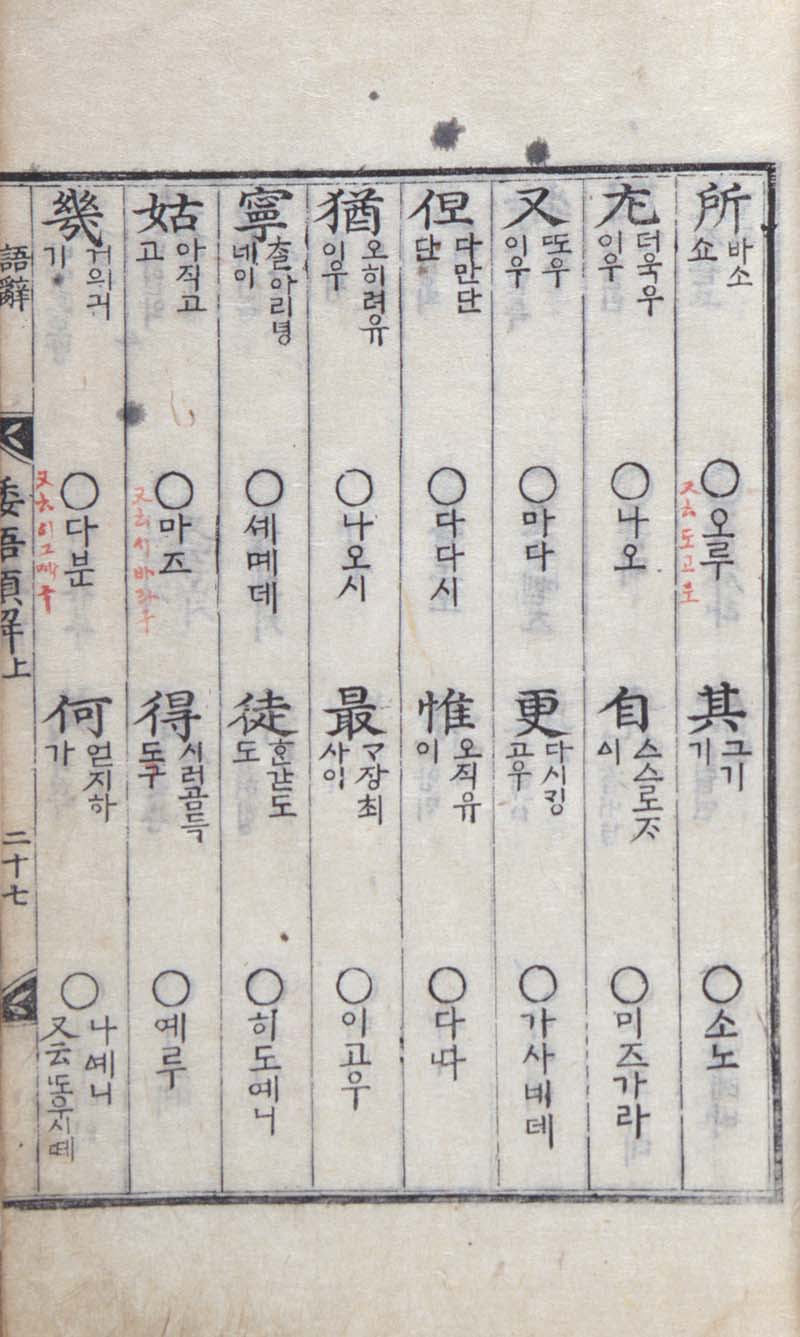 所 바소 쇼 ○오루 又云도고로 其 그기 기 ○소노
尤 더욱우 이우 ○나오 自 스스로ᄌᆞ 시 ○미즈가라
又 ᄯᅩ우 이우 ○마다 更 다시깅 고우 ○가사베데
但 다만단 단 ○다다시 惟 오직유 이 ○다ᄯᅡ
猶 오히려유 이우 ○나오시 最 ᄀᆞ장최 사이 ○이고우
寧 ᄎᆞᆯ아리녕 녜이 ○셰몌데 徒 ᄒᆞᆫ갇도 도 ○히도예니
姑 아직고 고 ○마즈 又云시바라구 得 시러곰득 도구 ○예루
幾 거의긔 기 ○다분 又云 何 얻지하 가 ○나예니 又云
語辭 倭語類解上 二十七